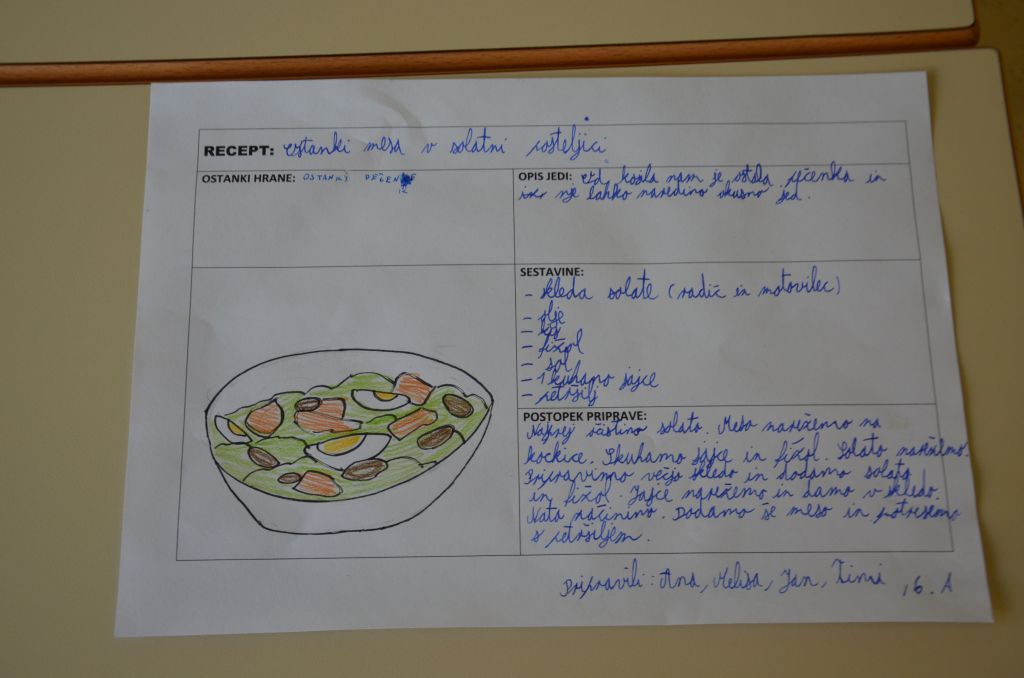 RECEPT: Ostanki mesa v solatni posteljici
OSTANKI HRANE: OSTANKI PEČENKE
OPIS JEDI: Od kosila nam je ostala pečenka in
iz nje lahko naredimo okusno jed.
SESTAVINE:
- skleda solate (radič in motovilec)
- olje
- kis
- fižol
- sol
- 1 kuhamo jajce
- peteršilj
POSTOPEK PRIPRAVE:
Najprej očistimo solato. Meso narežemo na
kockice. Skuhamo jajce in fižol. Solato narežemo.
Pripravimo večjo skledo in dodamo solato
in fižol. Jajce narežemo in damo v skledo.
Nato začinimo. Dodamo še meso in potresemo
s petršiljem.
Pripravili: Ana, Melisa, Jan, Timi, 6. A